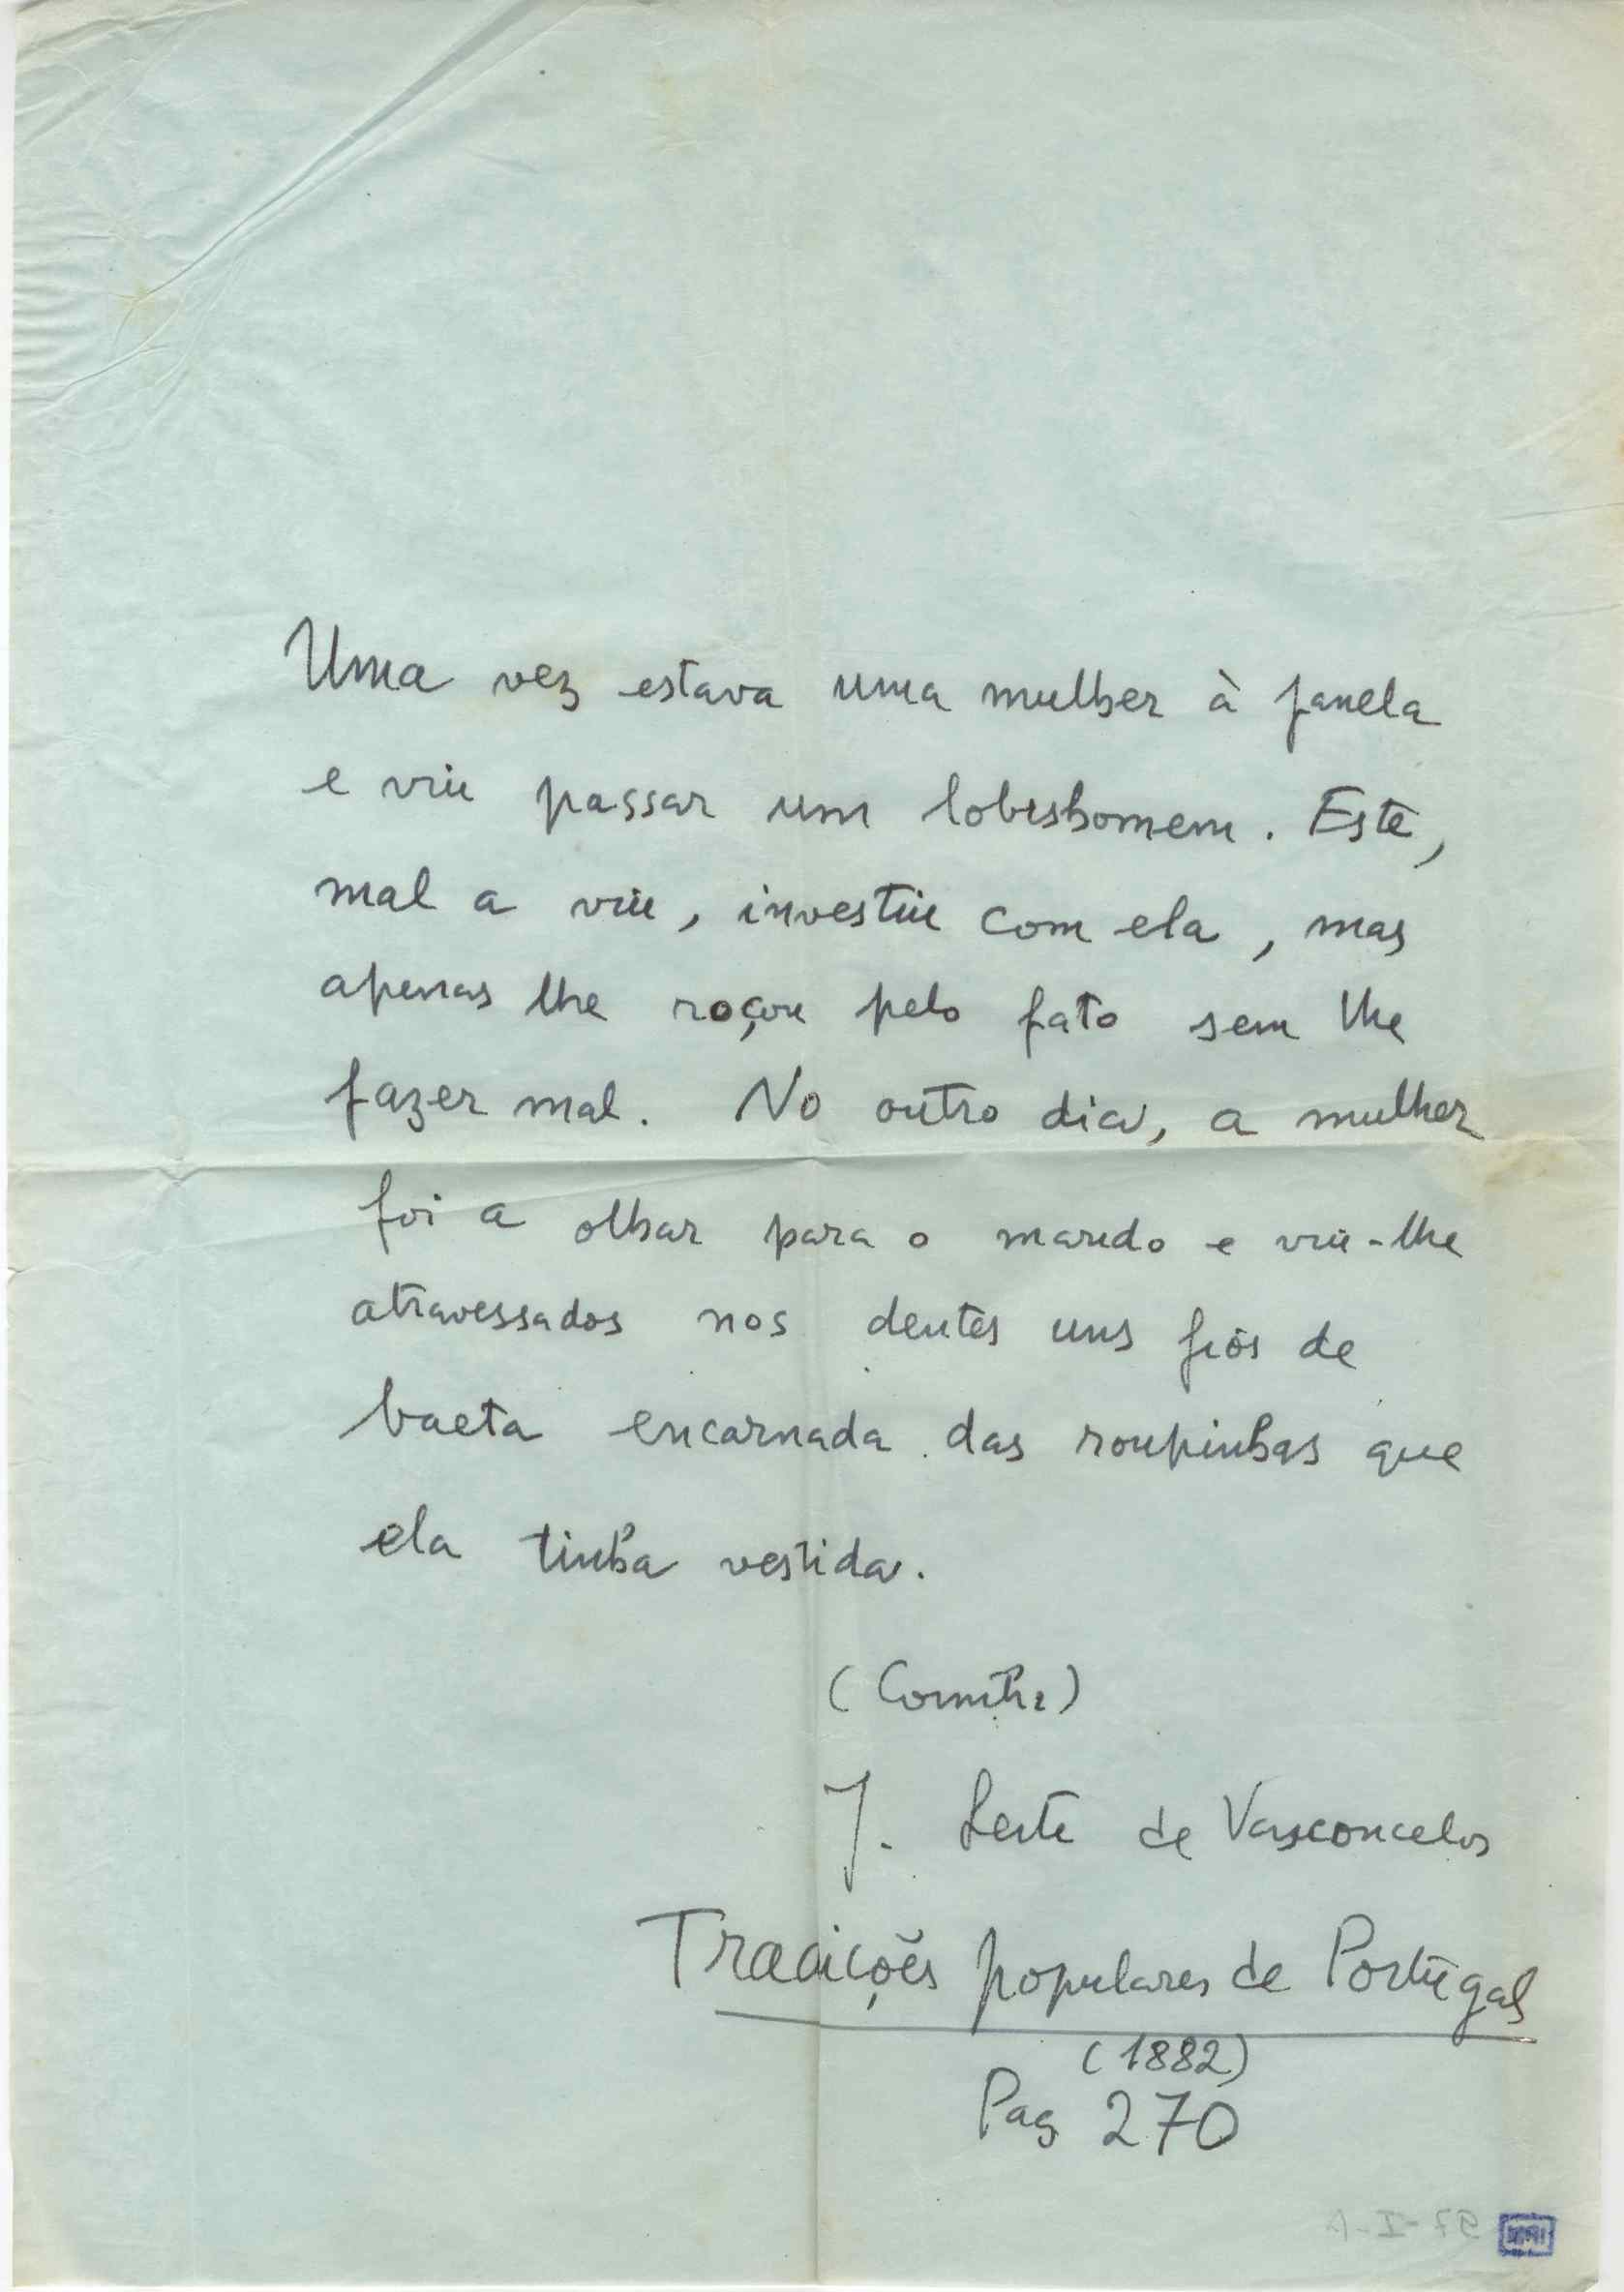 Uma vez estava uma mulher à janela
e viu passar um lobishomem. Este,
mal a viu, investiu com ela, mas
apenas lhe roçou pelo fato sem lhe
fazer mal. No outro dia, a mulher
foi a olhar para o marido e viu-lhe
atravessados nos dentes uns fios de
baeta encarnada das roupinhas que
ela tinha vestida.
J. Leite de Vasconcelos
Tradições populares de Portugal
(1882)
Pag 270